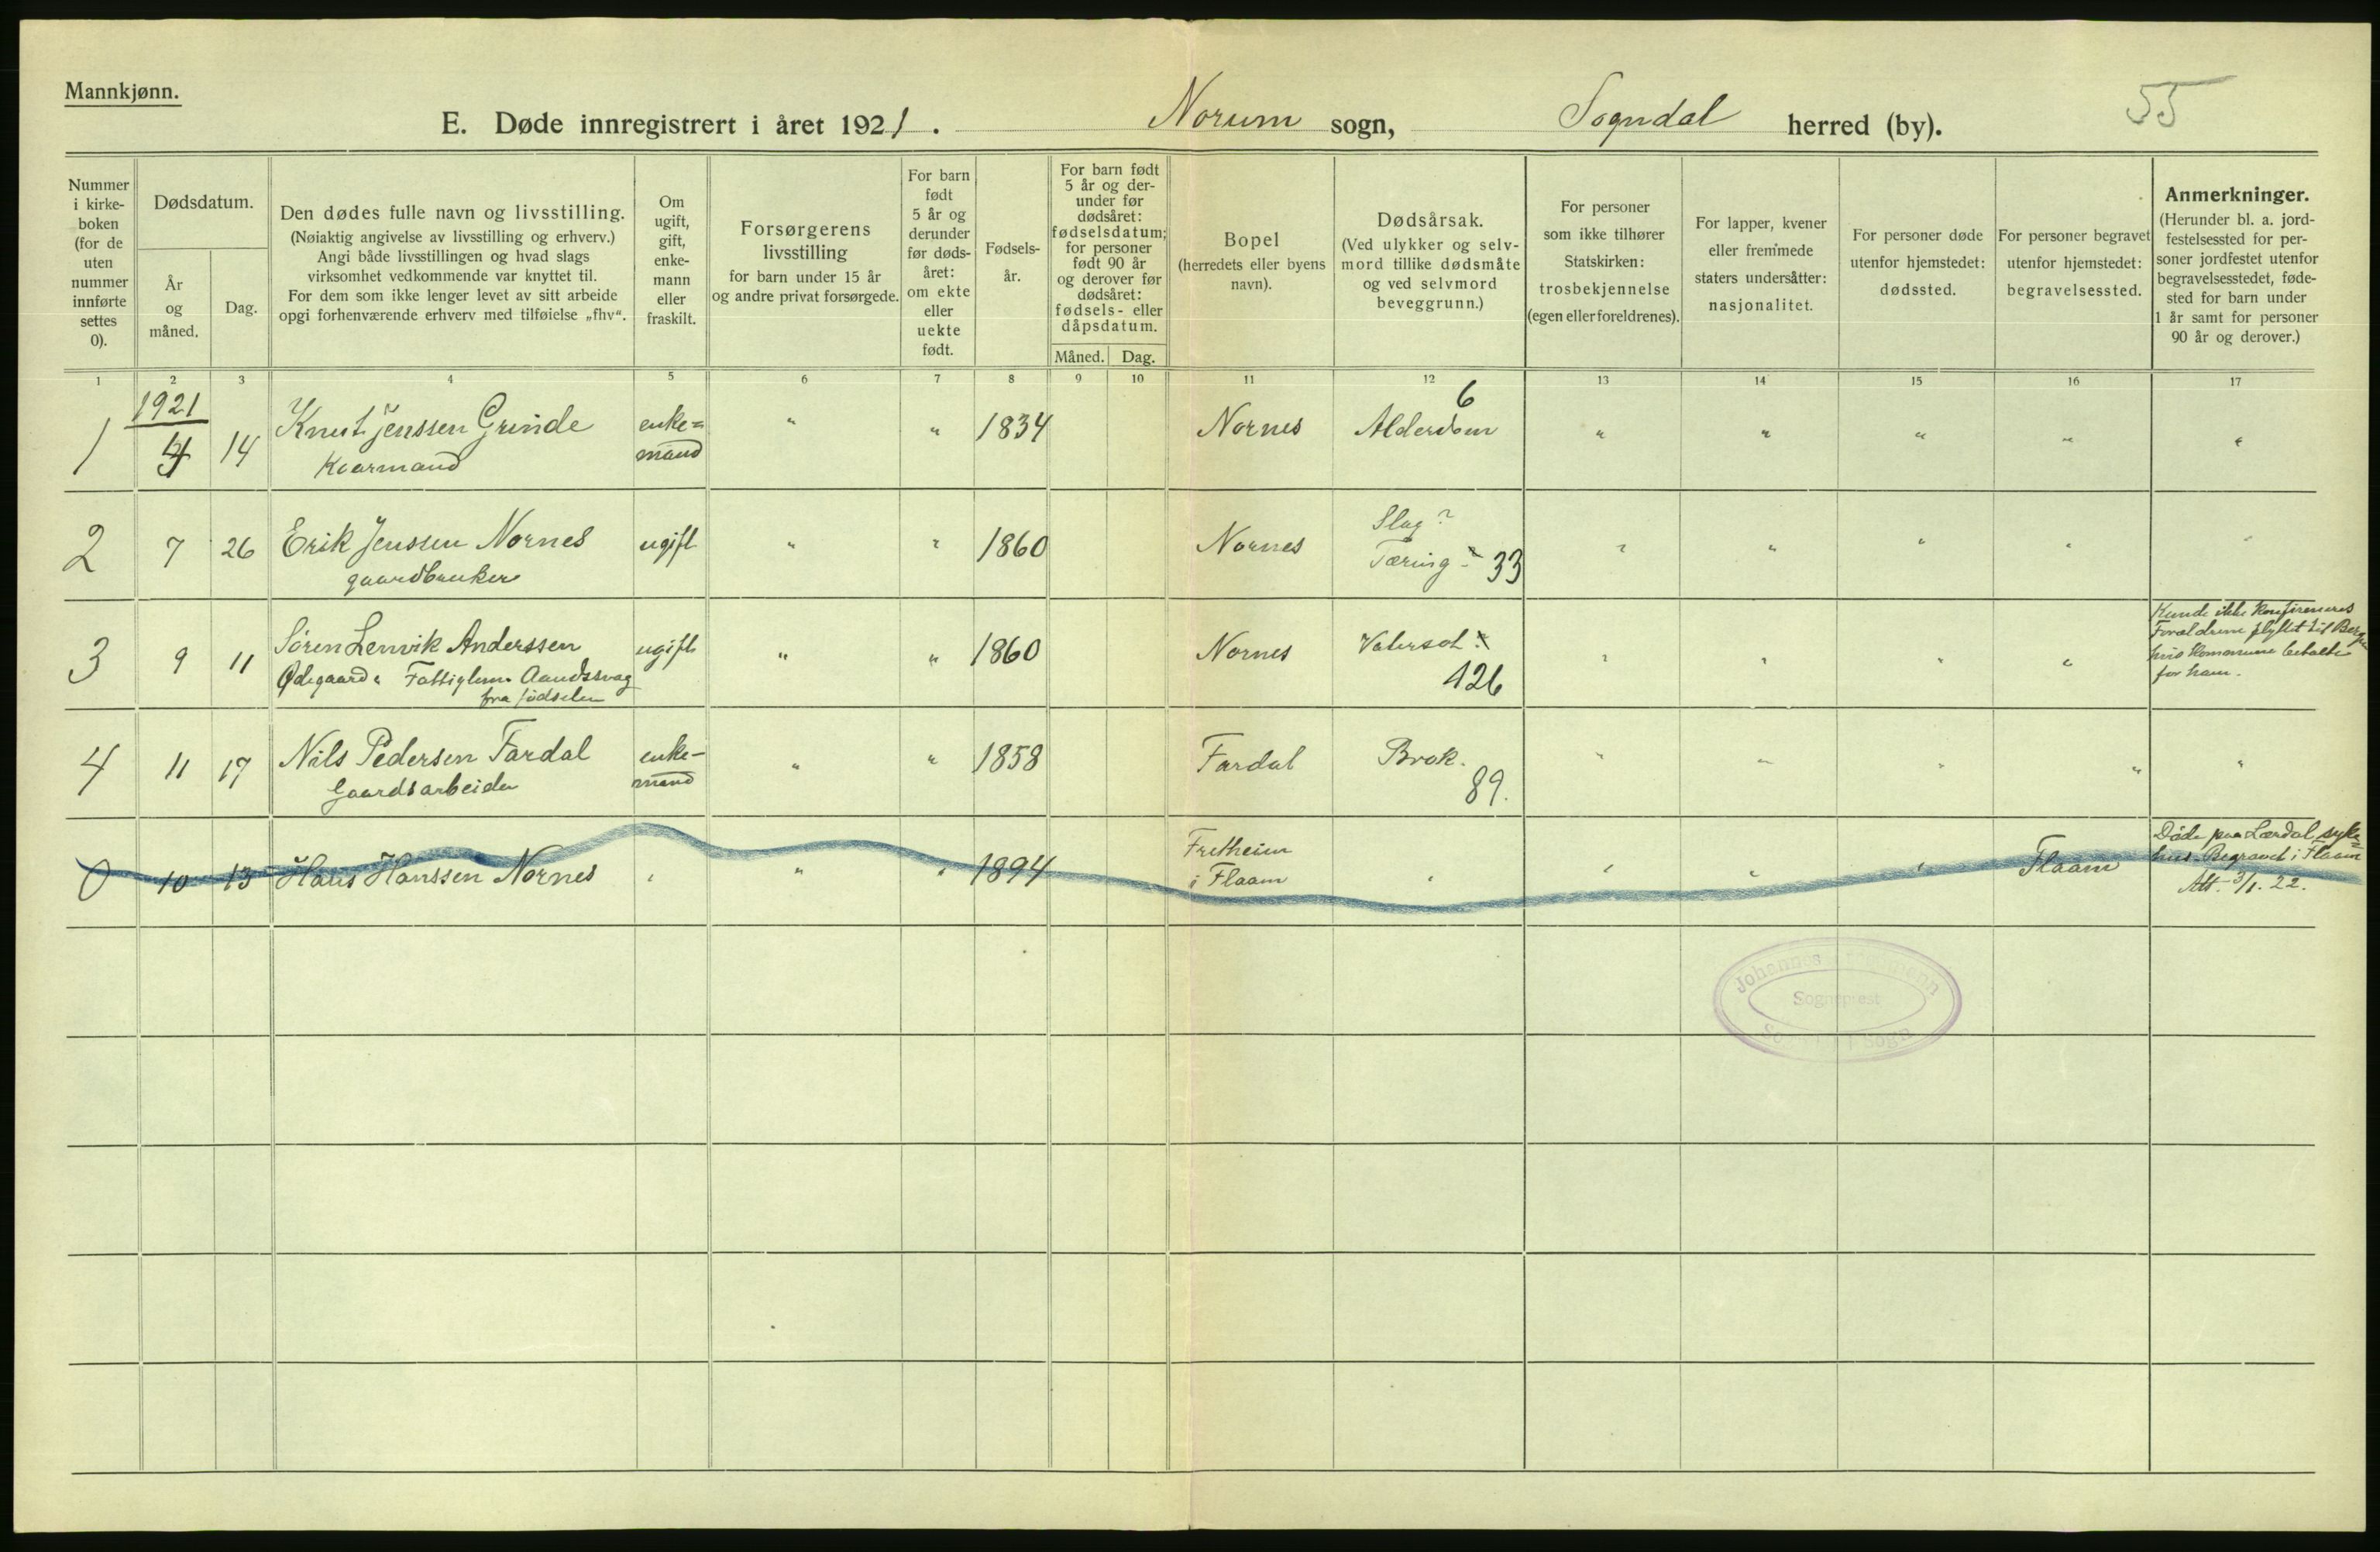 Mannkjønn.
E. Døde innregistrert i året 1921. Norum sogn, Sogndal herred (by). 55
Nummer i kirke-boken (for de uten nummer innførte settes 0).
Dødsdatum.
År og måned.
Dag.
Den dødes fulle navn og livsstilling.
(Nøiaktig angivelse av livsstilling og erhverv.)
Angi både livsstillingen og hvad slags
virksomhet vedkommende var knyttet til.
For dem som ikke lenger levet av sitt arbeide
opgi forhenværende erhverv med tilføielse „fhv“.
Om ugift, gift, enke-mann eller fraskilt.
Forsørgerens
livsstilling
for barn under 15 år
og andre privat forsørgede.
For barn født 5 år og derunder før døds-året: om ekte eller uekte født.
Fødsels-år.
For barn født 5 år og der-under før dødsåret: fødselsdatum; for personer født 90 år og derover før dødsåret: fødsels- eller dåpsdatum.
Måned. Dag.
Bopel
(herredets eller byens
navn).
Dødsårsak.
(Ved ulykker og selv-
mord tillike dødsmåte
og ved selvmord
beveggrunn.)
For personer
som ikke tilhører
Statskirken:
trosbekjennelse
(egen eller foreldrenes).
For lapper, kvener
eller fremmede
staters undersåtter:
nasjonalitet.
For personer døde
utenfor hjemstedet:
dødssted.
For personer begravet
utenfor hjemstedet:
begravelsessted.
Anmerkninger.
(Herunder bl. a. jord-
festelsessted for per-
soner jordfestet utenfor
begravelsesstedet, føde-
sted for barn under
1 år samt for personer
90 år og derover.)
1 2 3 4 5 6 7 8 9 10 11 12 13 14 15 16 17
1921
1 4 14 Knut Jenssen Grinde enke= " " 1834 Nornes Alderdom 6 " " " " "
Kaarmand mand
2 7 26 Erik Jenssen Nornes ugift " " 1860 Nornes Slag? " " " " "
gaardbruker Tæring? 33
3 9 11 Sören Lenvik Anderssen ugift " " 1860 Nornes Vatersot " " " " Kunde ikke konfirmeres
Ødegaard " Fattiglem. Aandssvag 126 Forældrene flyttet til Bergen
fra fødselen hvis Kommune betalte
for ham.
4 11 17 Nils Pedersen Fardal enke- " " 1858 Fardal Brok. " " " " "
Gaardsarbeider mand 89.
0 10 13 Hans Hanssen Nornes " " " 1894 Fretheim " " " " Flaam Döde paa Lærdal syke=
i Flaam hus. Begravet i Flaam
Att. 3/1. 22.
Johannes
Sogneprest
Sogn